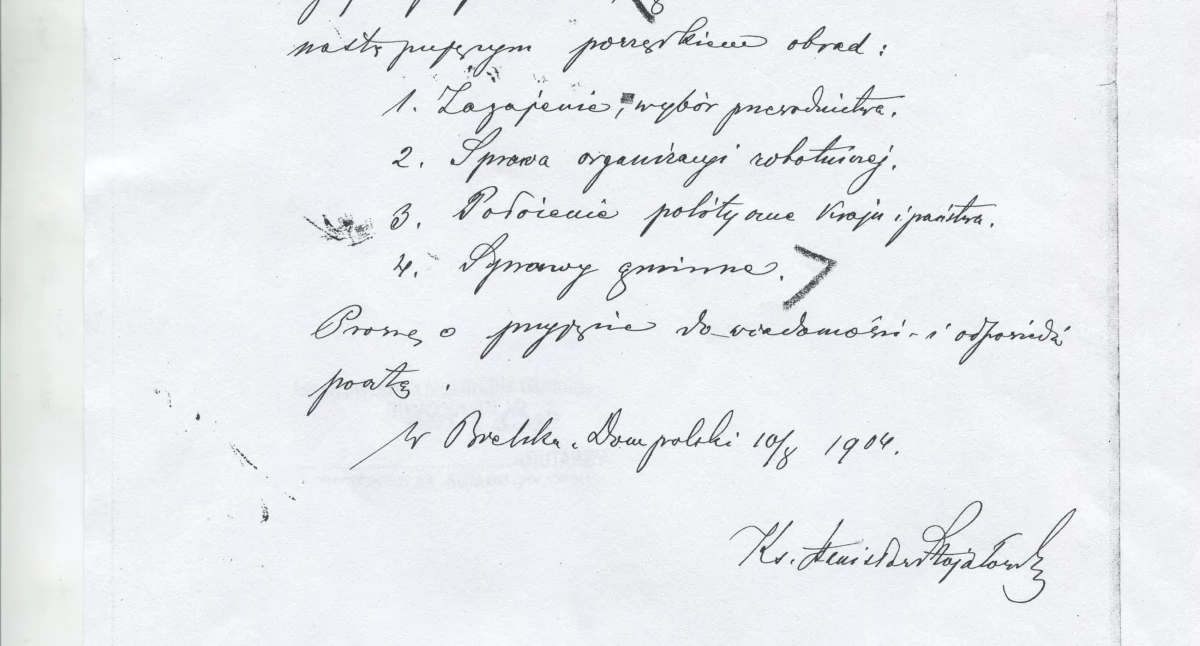 następującym porządkiem obrad:
1. Zagajenie, wybór przewodnictwa.
2. Sprawa organizacyi robotniczej.
3. Położenie polityczne kraju i państwa.
4. Sprawy gminne.
Proszę o przyjęcie do wiadomości i odpowiedź
pocztą.
W Bielsku. Dom polski 10/X 1904.
Ks. Stanisław Stojałowski